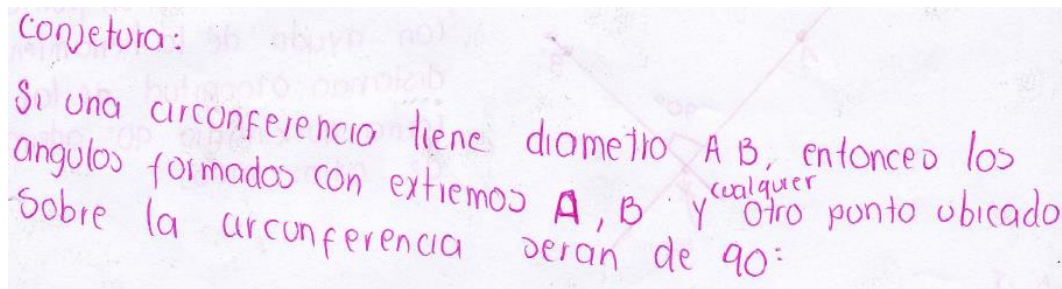 Conjetura:
Si una circonferencia tiene diametro AB, entonces los
angulos formados con extremos A, B y cualquier otro punto ubicado
sobre la circunferencia seran de 90: